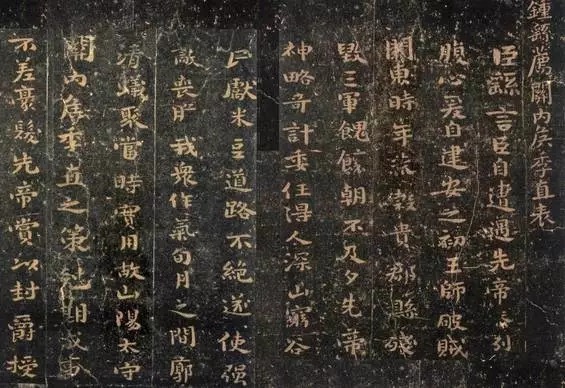 鍾繇薦關内侯季直表
臣繇言臣自遭遇先帝忝列
腹心爰自建安之初王師破賊
關東時年荒榖貴郡縣殘
毁三軍餽饟朝不及夕先帝
神略奇計委任得人深山窮谷
民獻米豆道路不絶遂使强
敵喪膽我衆作氣旬月之間廓
清蟻聚當時實用故山陽太守
關内侯季直之策尅期成事
不差豪髮先帝賞以封爵授